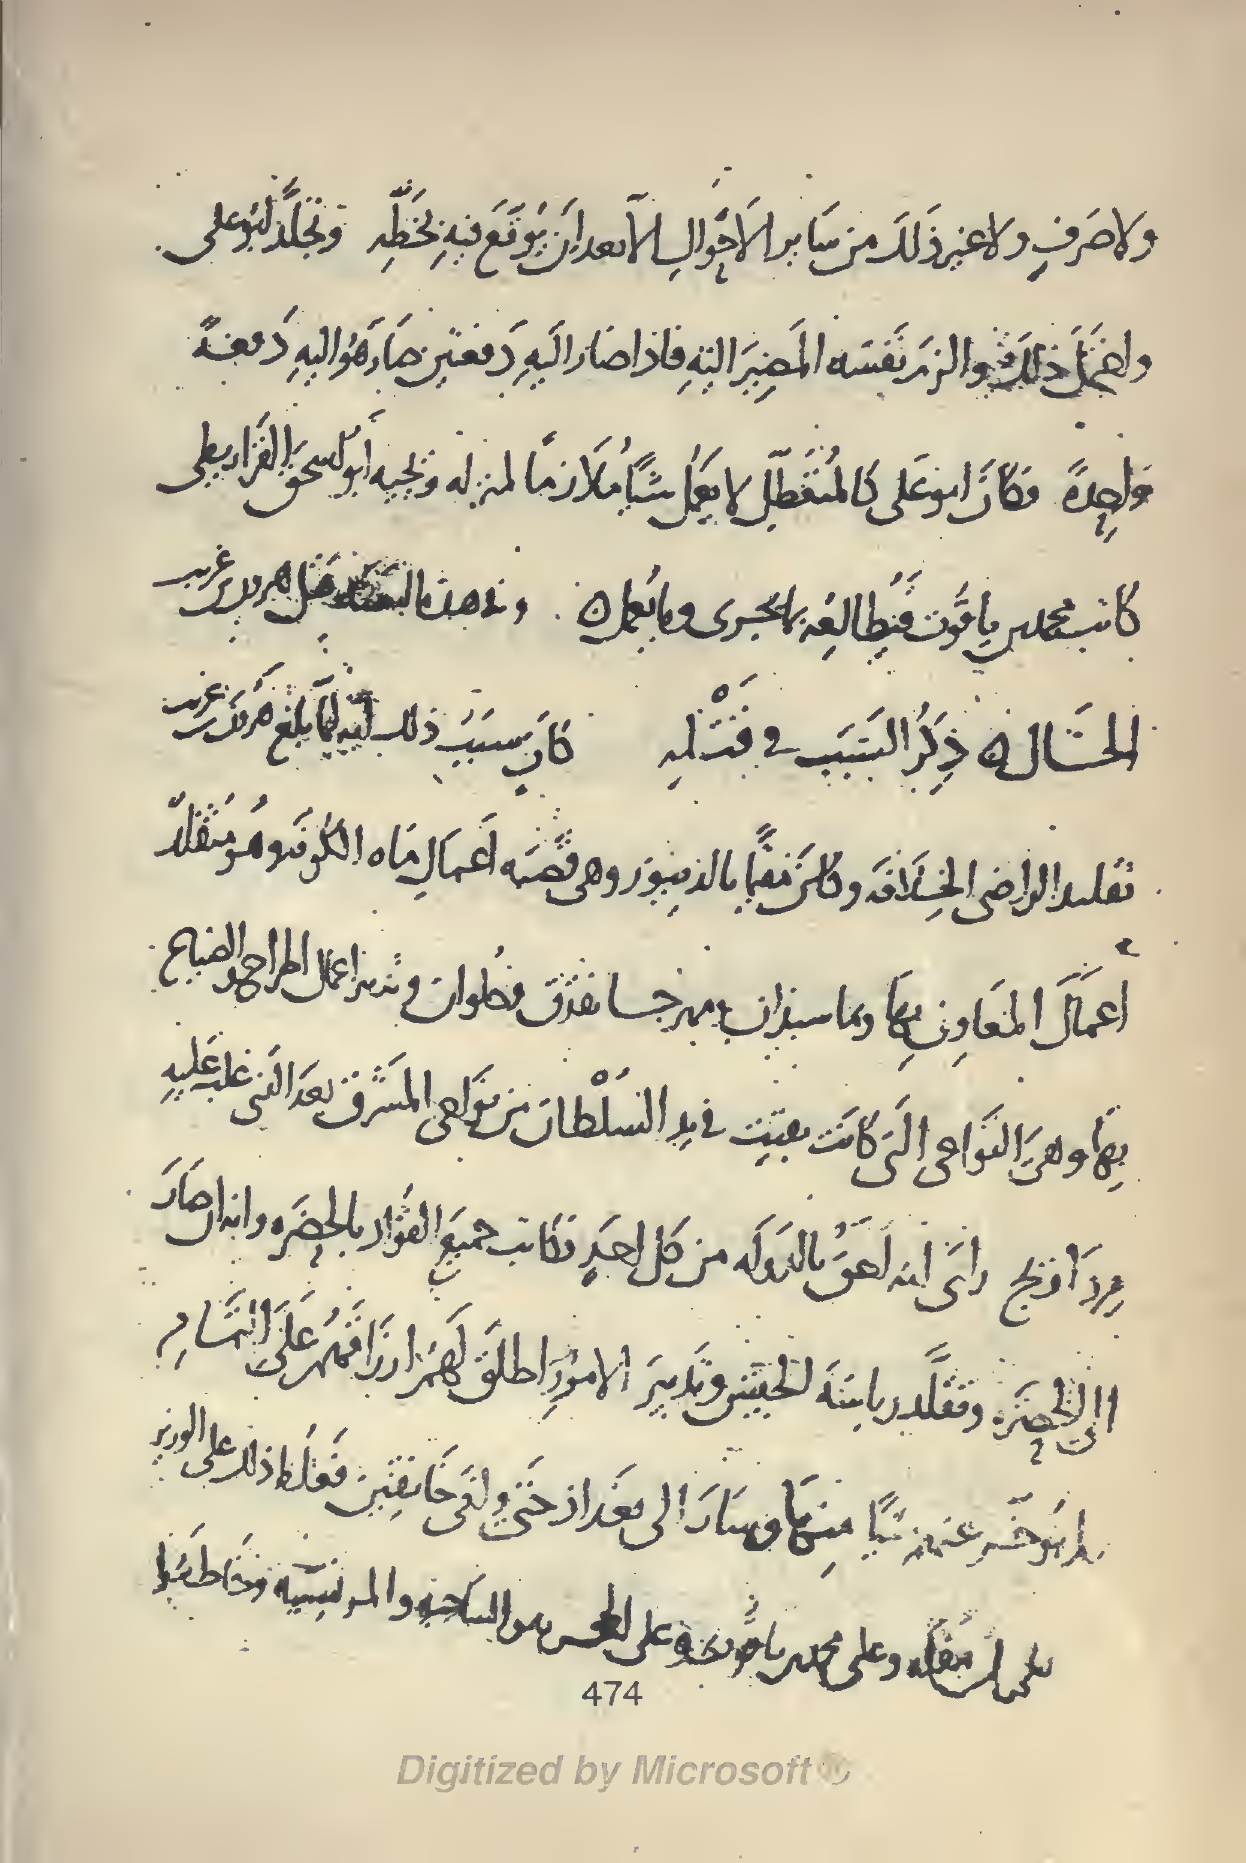 ولا صَرفٍ ولا غير ذلك من سَاير الاحوالِ الا بعد ان يُوَقّع فيهِ بخَطِّهِ وتجَلّد ابو على
واحتمَل ذلك والزم نَفسَه المصِيرَ اليهِ فاذا صَار اليهِ دَفعتين صَارَ هُوَ اليهِ دَفعةً
وَاحِدةً فكانَ ابو عَلى كالمُتعَطّلِ لا يعمَل شيًا مُلازمًا لمنزله ويجيه أبو اسحق القَراريطى
كاتب محمد بن ياقوت فيُطالِعُه بما يجرى وما يُعمل ٥ وفى هذه السنَه قتل هرون بن غريب
الخَال ٥ ذِكرُ السَبَب فى قَتْلِهِ كانَ سبَبُ ذلك انه لما بلغ هَرون بن غريب
تقليد الراضى الخِلافَه وكان مُقيمًا بالدينِوَر وهى قَصَبَه أعمالِ مَاه الكُوفَه وهُو مُتقَلّد
أعمَالَ المَعَاوِن بِها وبماسبذان ومهرجانقذق وحُلوان وتدبير اعمال الخراج والضياع
بِهَا وهىَ النَوَاحى التى كانَت بقيَت فى يدِ السُلْطان من نَواحى المَشرق بعدَ التى غلب عَليهِ
مردَاويج راىَ انه احَقُ بالدَولَه من كل احَدٍ فكاتب جميعَ القُوَّاد بالحضَره وانه ان صَارَ
الى الحَضرَه وتقَلّد رياسَةَ الجَيش وتَدبيرَ الامورِ اطلقَ لَهُم ارزاقهُم عَلَى التَمَامِ
ولم يؤخّر عنهم شيًا مِنهَا وسَارَ الى بغَداذ حَتى وافى خَانقين فَغلُظ ذلك على الوزير
على بن مقله وعلى محمد بن ياقُوت وعلى الحجريه والسَاجيه والمونسيَّه وخاطَبُوا
474
Digitized by Microsoft ®